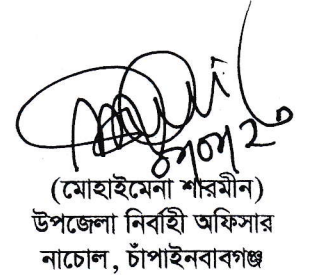 (মোহাইমেনা শারমীন)
উপজেলা নির্বাহী অফিসার
নাচোল, চাঁপাইনবাবগঞ্জ